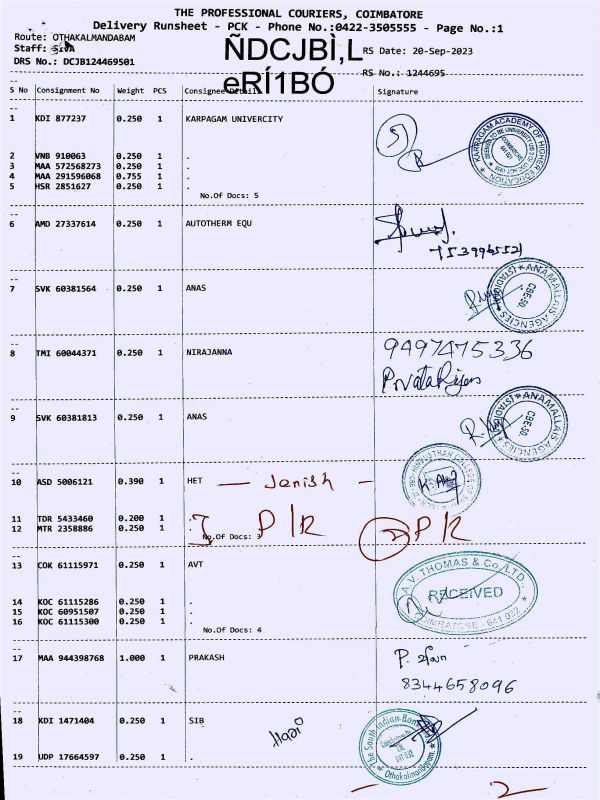 THE PROFESSIONAL COURIERS, COIMBATORE
Delivery Runsheet - PCK - Phone No.:0422-3505555 - Page No.:1
Route: OTHAKALMANDABAM
Staff: SIVA
ÑDCJBÌ,L
RS Date: 20-Sep-2023
DRS No.: DCJB124469501
eRÍ1BÓ
RS No.: 1244695
S No Consignment No Weight PCS Consignee Details Signature
1 KDI 877237 0.250 1 KARPAGAM UNIVERCITY
KARPAGAM ACADEMY OF HIGHER EDUCATION
2 VNB 910063 0.250 1 .
3 MAA 572568273 0.250 1 .
4 MAA 291596068 0.755 1 .
5 HSR 2851627 0.250 1 .
No.Of Docs: 5
6 AMD 27337614 0.250 1 AUTOTHERM EQU
7539965521
7 SVK 60381564 0.250 1 ANAS
ANAMALLAIS AGENCIES
CBE-50.
8 TMI 60044371 0.250 1 NIRAJANNA 9497475336
9 SVK 60381813 0.250 1 ANAS
ANAMALLAIS AGENCIES
CBE-50.
10 ASD 5006121 0.390 1 HET — Jenish —
11 TDR 5433460 0.200 1 .
12 MTR 2358886 0.250 1 .
P/R P/R
No.Of Docs: 3
13 COK 61115971 0.250 1 AVT
A.V. THOMAS & Co. LTD.,
RECEIVED
COIMBATORE - 641 032
14 KOC 61115286 0.250 1 .
15 KOC 60951507 0.250 1 .
16 KOC 61115300 0.250 1 .
No.Of Docs: 4
17 MAA 944398768 1.000 1 PRAKASH
8344658096
18 KDI 1471404 0.250 1 SIB
The South Indian Bank
Othakalmandapam
19 UDP 17664597 0.250 1 .
2